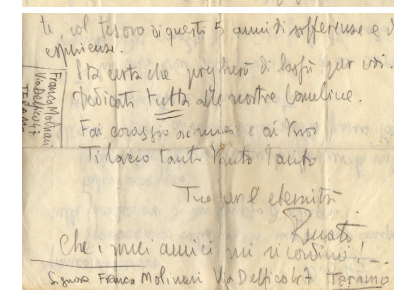 te, col tesoro di questi 5 anni di sofferenze e di
esperienze.
Sta certa che pregherò di lassù per voi.
Dedicati tutta alle nostre bambine.
Fai coraggio ai miei e ai tuoi
Ti bacio tanto tanto tanto
Tuo per l'eternità
Renato
Che i miei amici mi ricordino!
Signora Franca Molinari Via Delfico 17 Teramo
Franca Molinari
Via Delfico 17
TERAMO